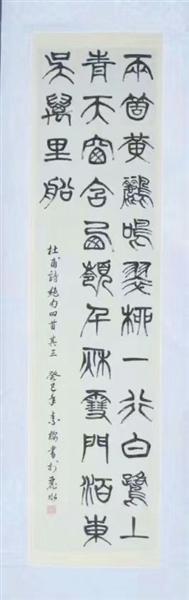 兩箇黃鸝鳴翠柳一行白鷺上
青天窗含西嶺千秋雪門泊東
吳萬里船
杜甫詩絕句四首其三 癸巳年書於麗水